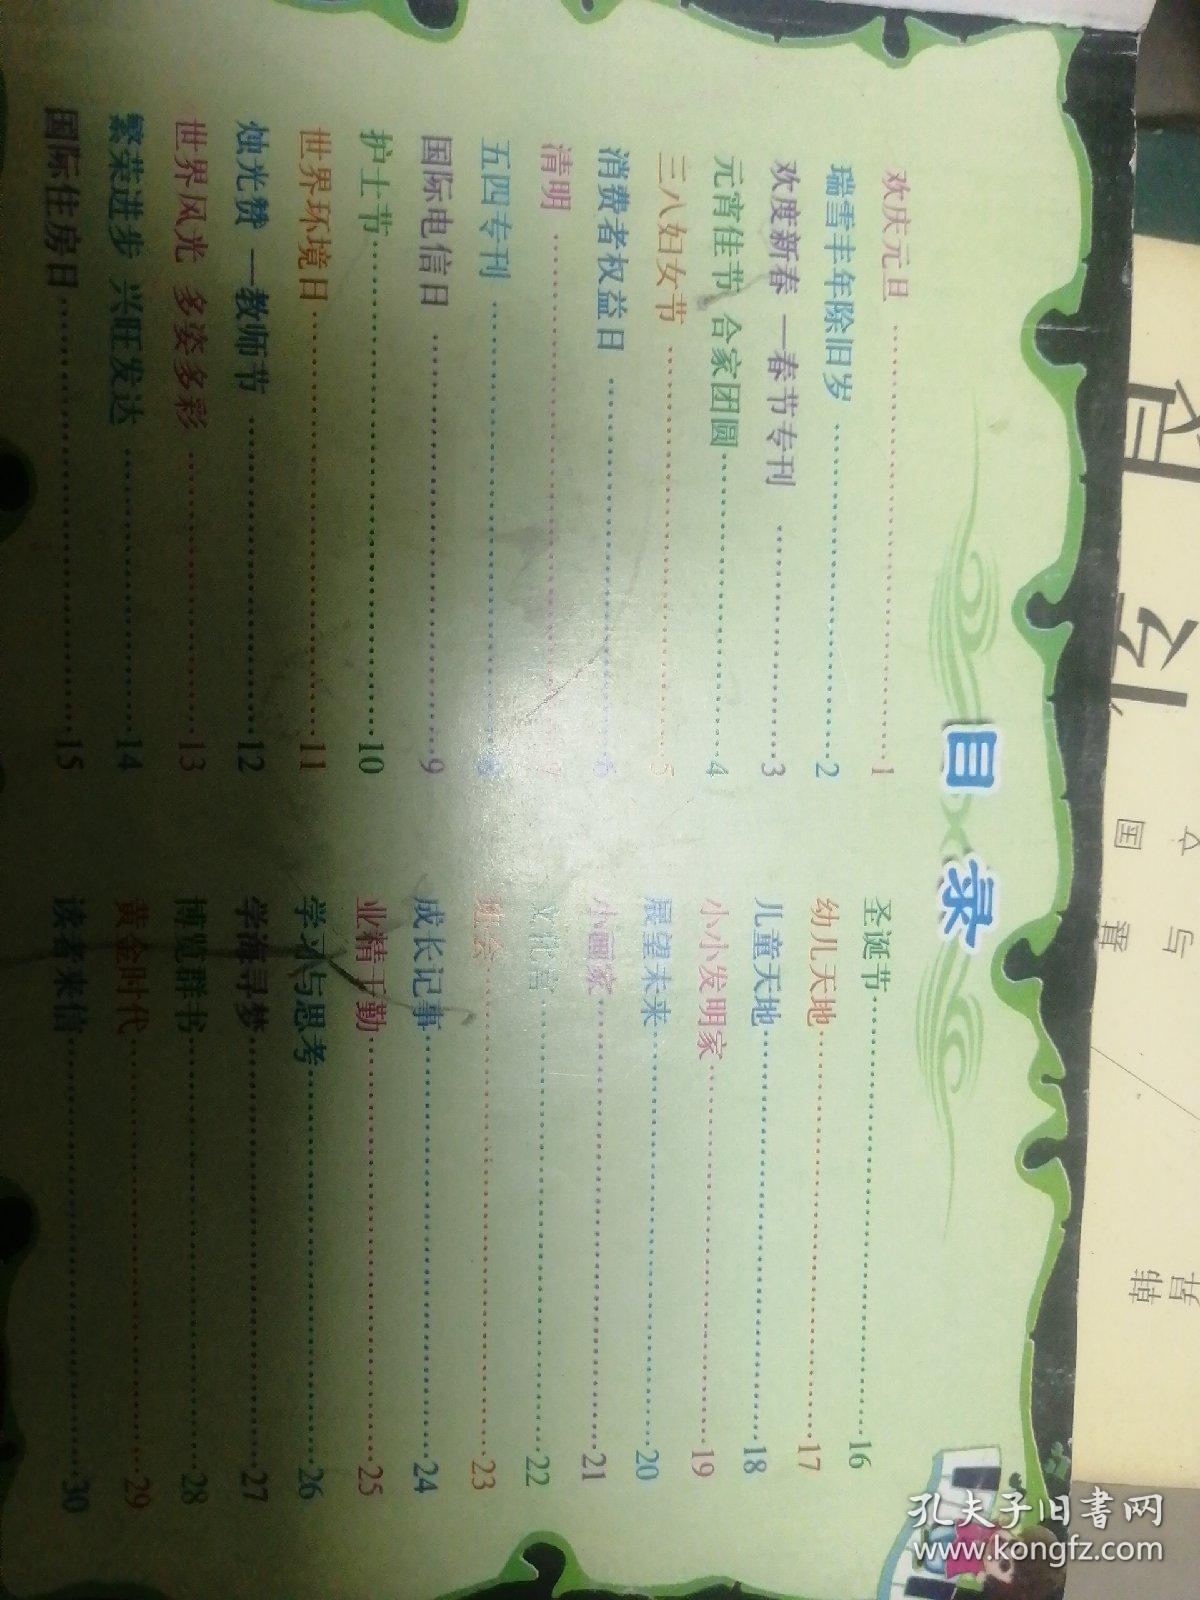 目录
欢庆元旦…………1
瑞雪丰年除旧岁…………2
欢度新春 —春节专刊…………3
元宵佳节 合家团圆…………4
三八妇女节…………5
消费者权益日…………6
清明…………7
五四专刊…………8
国际电信日…………9
护士节…………10
世界环境日…………11
烛光赞 —教师节…………12
世界风光 多姿多彩…………13
繁荣进步 兴旺发达…………14
国际住房日…………15
圣诞节…………16
幼儿天地…………17
儿童天地…………18
小小发明家…………19
展望未来…………20
小画家…………21
…………22
班会…………23
成长记事…………24
业精于勤…………25
学习与思考…………26
学海寻梦…………27
博览群书…………28
黄金时代…………29
读者来信…………30
国
与
韩昇
孔夫子旧书网
www.kongfz.com